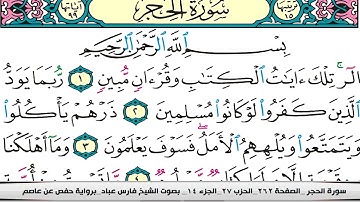 سُورَةُ الحِجْرِ
بِسْمِ ٱللَّهِ ٱلرَّحْمَٰنِ ٱلرَّحِيمِ
الٓر ۚ تِلْكَ ءَايَٰتُ ٱلْكِتَٰبِ وَقُرْءَانٍ مُّبِينٍ ١ رُّبَمَا يَوَدُّ
ٱلَّذِينَ كَفَرُوا۟ لَوْ كَانُوا۟ مُسْلِمِينَ ٢ ذَرْهُمْ يَأْكُلُوا۟
وَيَتَمَتَّعُوا۟ وَيُلْهِهِمُ ٱلْأَمَلُ ۖ فَسَوْفَ يَعْلَمُونَ ٣ وَمَآ أَهْلَكْنَا
سورة الحجر _ الصفحة ٢٦٢ _ الحزب ٢٧ _ الجزء ١٤ _ بصوت الشيخ فارس عباد _ برواية حفص عن عاصم